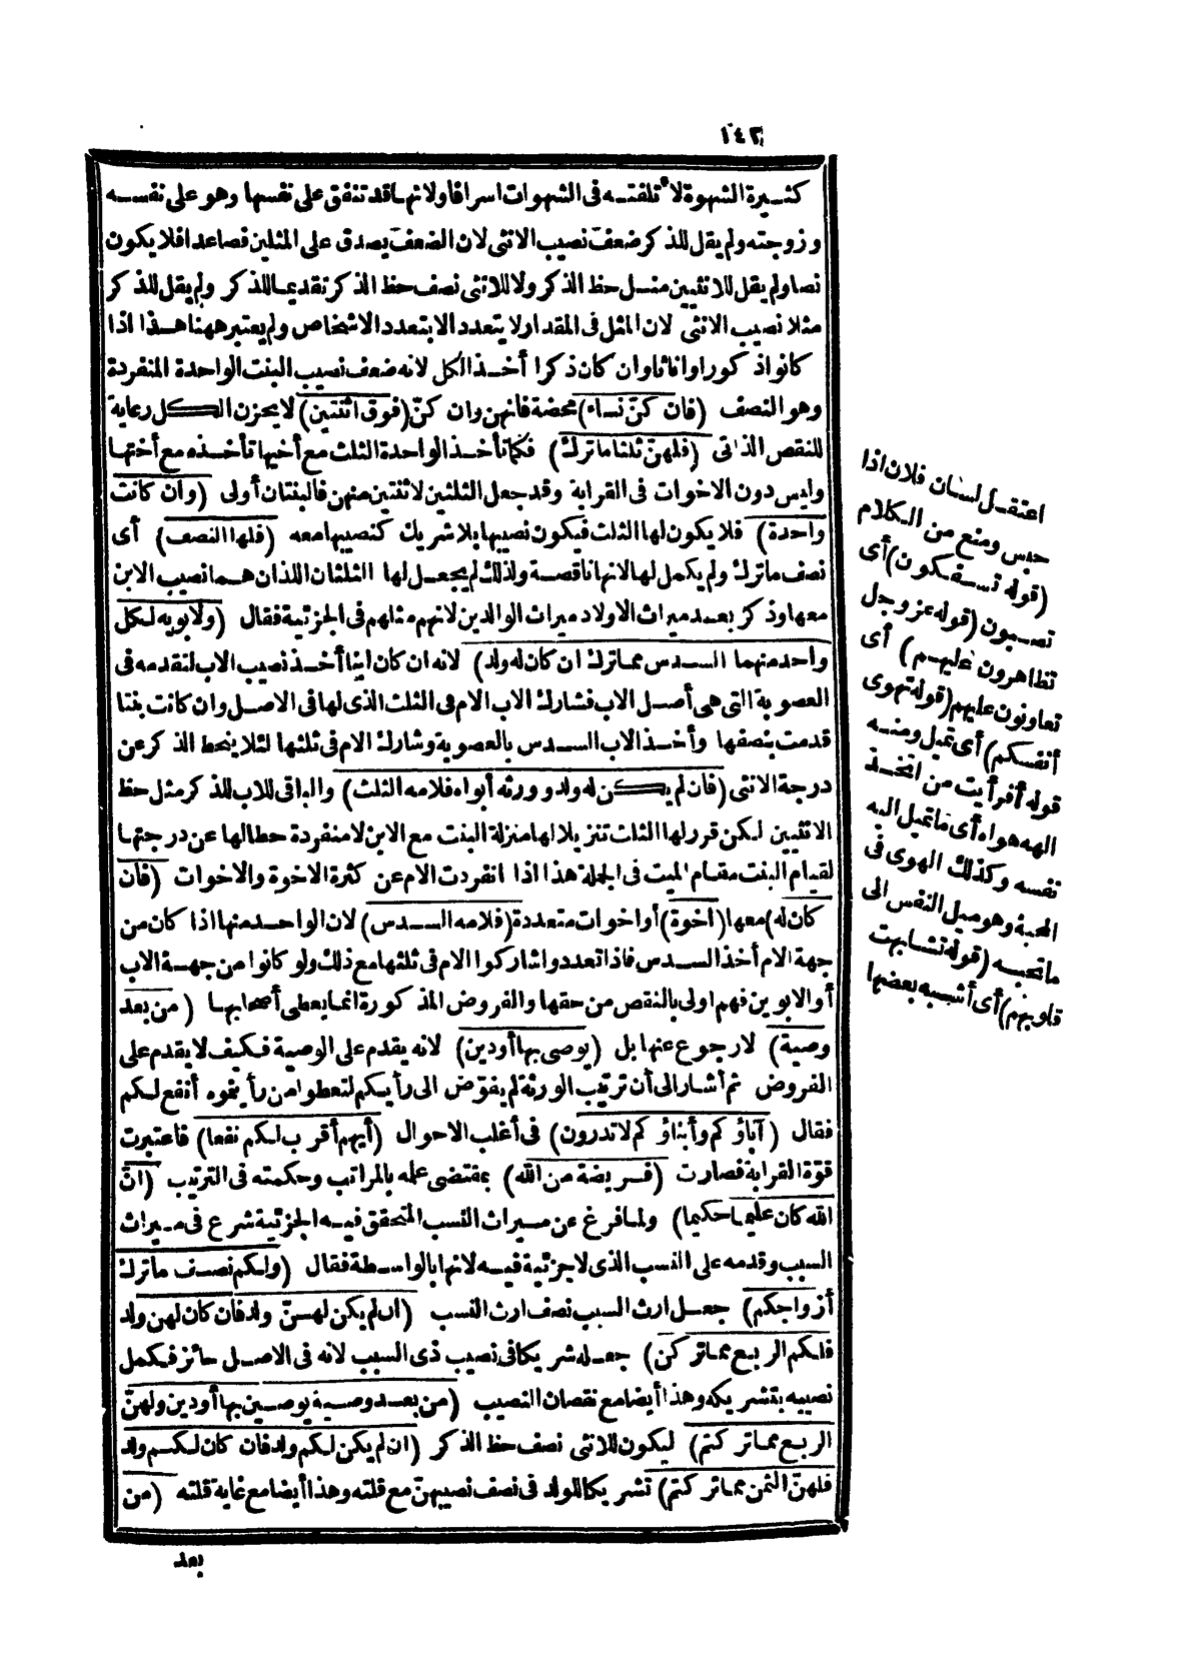 ١٤٢
كثيرة الشهوة لا تلفته فى الشهوات اسرافا ولانها قد تنفق على نفسها وهو على نفسه
وزوجته ولم يقل للذكر ضعف نصيب الانثى لان الضعف يصدق على المثلين فصاعدا فلا يكون
نصا ولم يقل للانثيين مثل حظ الذكر ولا للانثى نصف حظ الذكر تقديما للذكر ولم يقل للذكر
مثلا نصيب الانثى لان المثل فى المقدار لا يتعدد الا بتعدد الاشخاص ولم يعتبر ههنا هذا اذا
كانوا ذكورا واناثا وان كان ذكرا أخذ الكل لانه ضعف نصيب البنت الواحدة المنفردة
وهو النصف (فان كنّ نساء) محضة فانهن وان كنّ (فوق اثنتين) لا يحزن الكل رعاية
للنقص الذاتى (فلهنّ ثلثا ماترك) فكما تأخذ الواحدة الثلث مع أخيها تأخذه مع أختها
وليس دون الاخوات فى القرابة وقد جعل الثلثين لاثنتين منهن فالبنتان أولى (وان كانت
واحدة) فلا يكون لها الثلث فيكون نصيبها بلا شريك كنصيبها معه (فلها النصف) أى
نصف ماترك ولم يكمل لها لانها ناقصة ولذلك لم يجعل لها الثلثان اللذان هما نصيب الابن
معها وذكر بعد ميراث الاولاد ميراث الوالدين لانهم مثلهم فى الجزئية فقال (ولابويه لكل
واحد منهما السدس مماترك ان كان له ولد) لانه ان كان ابنا أخذ نصيب الاب لتقدمه فى
العصوبة التى هى أصل الاب فشارك الاب الام فى الثلث الذى لها فى الاصل وان كانت بنتا
قدمت بنصفها وأخذ الاب السدس بالعصوبة وشارك الام فى ثلثها لئلا ينحط الذكر عن
درجة الانثى (فان لم يكن له ولد وورثه أبواه فلامه الثلث) والباقى للاب للذكر مثل حظ
الانثيين لكن قرر لها الثلث تنزيلا لها منزلة البنت مع الابن لا منفردة حطا لها عن درجتها
لقيام البنت مقام الميت فى الجملة هذا اذا انفردت الام عن كثرة الاخوة والاخوات (فان
كان له) معها (اخوة) أو اخوات متعددة (فلامه السدس) لان الواحد منها اذا كان من
جهة الام أخذ السدس فاذا تعددوا شاركوا الام فى ثلثها مع ذلك ولو كانوا من جهة الاب
أو الابوين فهم اولى بالنقص من حقها والفروض المذكورة انما يعطى أصحابها (من بعد
وصية) لا رجوع عنها بل (يوصى بها أو دين) لانه يقدم على الوصية فكيف لا يقدم على
الفروض ثم أشار الى أن ترتيب الورثة لم يفوّض الى رأيكم لتعطوا من رأيتموه أنفع لكم
فقال (آباؤكم وأبناؤكم لا تدرون) فى أغلب الاحوال (أيهم أقرب لكم نفعا) فاعتبرت
قوّة القرابة فصارت (فريضة من الله) بمقتضى علمه بالمراتب وحكمته فى الترتيب (انّ
الله كان عليما حكيما) ولما فرغ عن ميراث النسب المتحقق فيه الجزئية شرع فى ميراث
السبب وقدمه على النسب الذى لا جزئية فيه لانها بالواسطة فقال (ولكم نصف ماترك
أزواجكم) جعل ارث السبب نصف ارث النسب (ان لم يكن لهنّ ولد فان كان لهن ولد
فلكم الربع مماتركن) جعله شريكا فى نصيب ذى السبب لانه فى الاصل حائز فيكمل
نصيبه بتشريكه وهذا أيضا مع نقصان النصيب (من بعد وصية يوصين بها أو دين ولهنّ
الربع مماتركتم) ليكون للانثى نصف حظ الذكر (ان لم يكن لكم ولد فان كان لكم ولد
فلهنّ الثمن مماتركتم) تشريكا للولد فى نصف نصيبهنّ مع قلته وهذا أيضا مع غاية قلته (من
بعد
اعتقل لسان فلان اذا
حبس ومنع من الكلام
(قوله تسفكون) أى
تصبون (قوله عز وجل
تظاهرون عليهم) أى
تعاونون عليهم (قوله تهوى
أنفسكم) أى تميل ومنه
قوله أفرأيت من اتخذ
الهه هواه أى ما تميل اليه
نفسه وكذلك الهوى فى
المحبة وهو ميل النفس الى
ما تحبه (قوله تشابهت
قلوبهم) أى أشبه بعضها